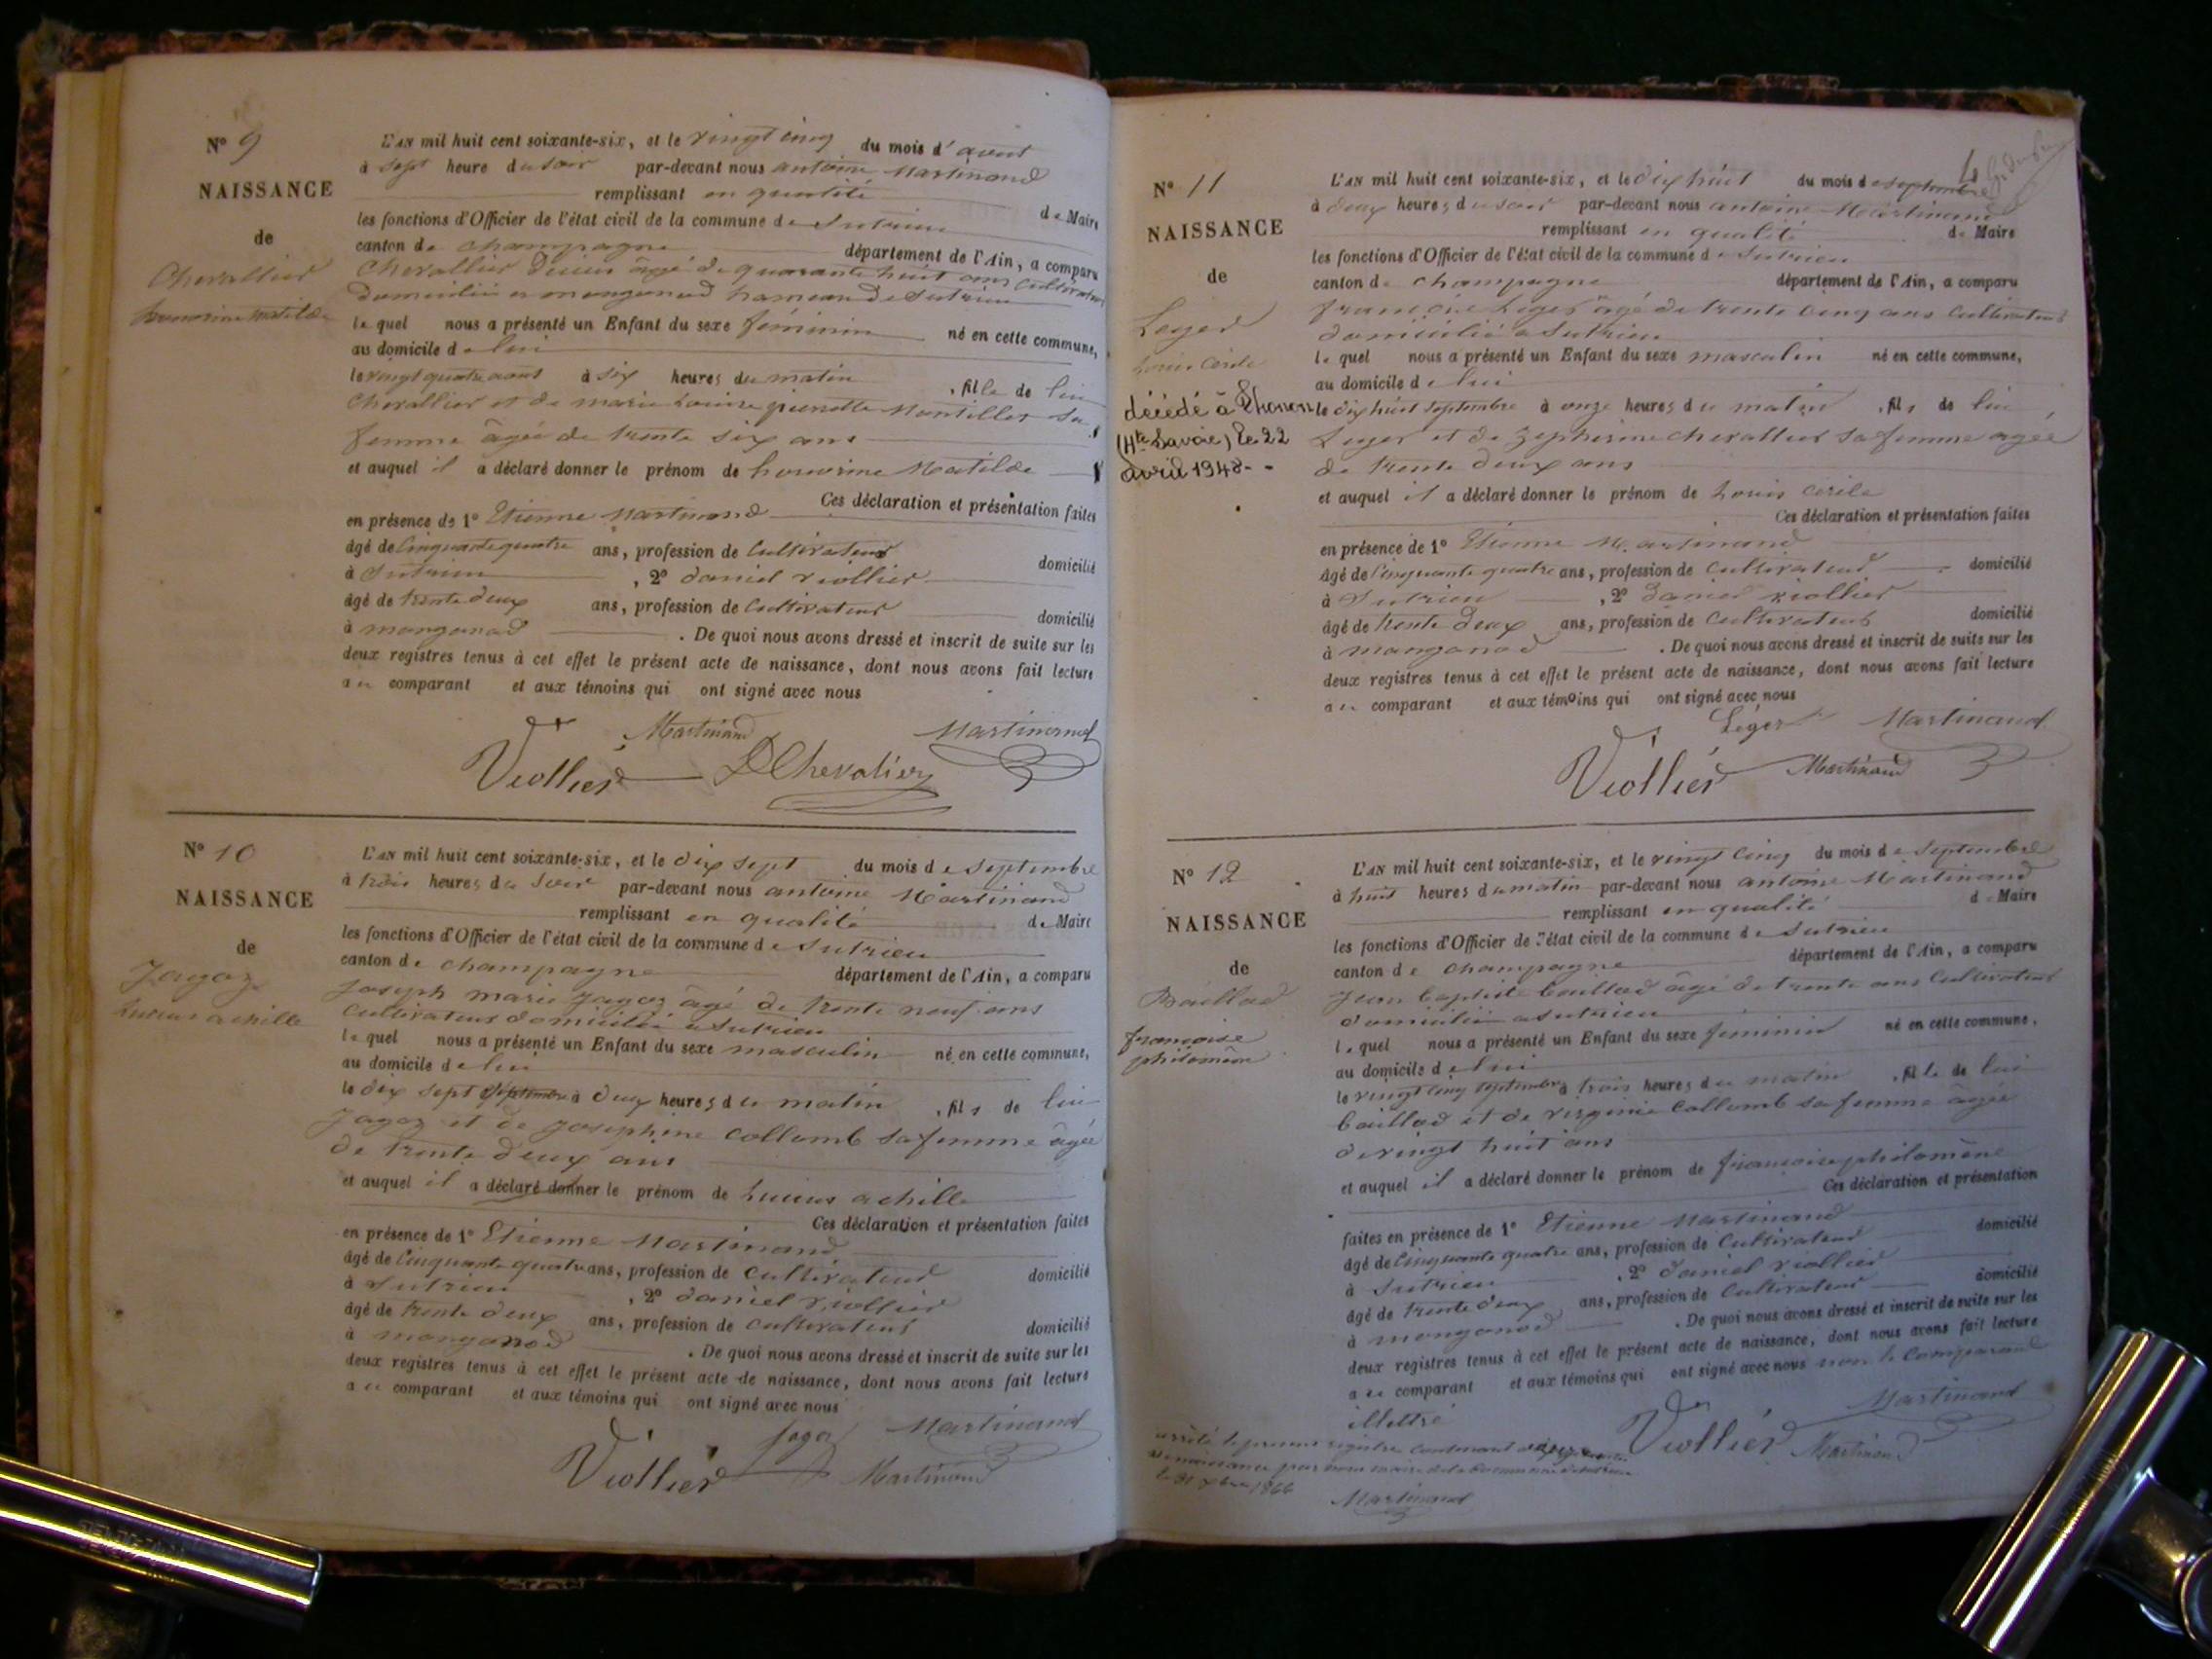 N° 9
NAISSANCE
de
Chevallier
honorine Matilde
L'AN mil huit cent soixante-six, et le vingt cinq du mois d'aout
à sept heure du soir par-devant nous antoine Martinand
remplissant en qualité de Maire
les fonctions d'Officier de l'état civil de la commune de Sutrieu
canton de champagne département de l'Ain, a comparu
Chevallier âgé de quarante huit ans Cultivateur
domicilié a mongonod hameau de Sutrieu
lequel nous a présenté un Enfant du sexe féminin né en cette commune,
au domicile de lui
le vingt quatre aout à six heures du matin, fille de lui
Chevallier et de marie Louise pierrette Montillet sa
femme âgée de trente six ans
et auquel il a déclaré donner le prénom de honorine Matilde
Ces déclaration et présentation faites
en présence de 1° Etienne Martinand
âgé de Cinquante quatre ans, profession de Cultivateur domicilié
à Sutrieu, 2° daniel viollier
âgé de trente deux ans, profession de Cultivateur domicilié
à mongonod. De quoi nous avons dressé et inscrit de suite sur les
deux registres tenus à cet effet le présent acte de naissance, dont nous avons fait lecture
au comparant et aux témoins qui ont signé avec nous
Martinand Martinand
Viollier DChevalier
N° 10
NAISSANCE
de
Jagoz
Lucius achille
L'AN mil huit cent soixante-six, et le dix sept du mois de Septembre
à trois heures du Soir par-devant nous antoine Martinand
remplissant en qualité de Maire
les fonctions d'Officier de l'état civil de la commune de Sutrieu
canton de champagne département de l'Ain, a comparu
Joseph marie Jagoz âgé de trente neuf ans
Cultivateur domicilié a Sutrieu
lequel nous a présenté un Enfant du sexe masculin né en cette commune,
au domicile de lui
le dix sept Septembre à deux heures du matin, fils de lui
Jagoz et de Josephine Collomb sa femme âgée
de trente deux ans
et auquel il a déclaré donner le prénom de Lucius achille
Ces déclaration et présentation faites
en présence de 1° Etienne Martinand
âgé de Cinquante quatre ans, profession de Cultivateur domicilié
à Sutrieu, 2° daniel viollier
âgé de trente deux ans, profession de Cultivateur domicilié
à mongonod. De quoi nous avons dressé et inscrit de suite sur les
deux registres tenus à cet effet le présent acte de naissance, dont nous avons fait lecture
au comparant et aux témoins qui ont signé avec nous
Jagoz Martinand
Viollier Martinand
N° 11
NAISSANCE
de
Leger
Louis Cécile
décédé à Thonon
(Hte Savoie) le 22
avril 1948
L'AN mil huit cent soixante-six, et le dix huit du mois de Septembre
à deux heures du soir par-devant nous antoine Martinand
remplissant en qualité de Maire
les fonctions d'Officier de l'état civil de la commune de Sutrieu
canton de champagne département de l'Ain, a comparu
françois Leger âgé de trente cinq ans Cultivateur
domicilié a Sutrieu
lequel nous a présenté un Enfant du sexe masculin né en cette commune,
au domicile de lui
le dix huit Septembre à onze heures du matin, fils de lui
Leger et de Zepherine chevallier sa femme agée
de trente deux ans
et auquel il a déclaré donner le prénom de Louis Cécile
Ces déclaration et présentation faites
en présence de 1° Etienne Martinand
âgé de Cinquante quatre ans, profession de Cultivateur domicilié
à Sutrieu, 2° daniel viollier
âgé de trente deux ans, profession de Cultivateur domicilié
à mongonod. De quoi nous avons dressé et inscrit de suite sur les
deux registres tenus à cet effet le présent acte de naissance, dont nous avons fait lecture
au comparant et aux témoins qui ont signé avec nous
Léger Martinand
Viollier Martinand
N° 12
NAISSANCE
de
Baillod
françoise
philomène
L'AN mil huit cent soixante-six, et le vingt Cinq du mois de Septembre
à huit heures du matin par-devant nous antoine Martinand
remplissant en qualité de Maire
les fonctions d'Officier de l'état civil de la commune de Sutrieu
canton de champagne département de l'Ain, a comparu
Jean baptiste baillod âgé de trente ans Cultivateur
domicilié a Sutrieu
lequel nous a présenté un Enfant du sexe féminin né en cette commune,
au domicile de lui
le vingt cinq Septembre à trois heures du matin, fille de lui
baillod et de virginie Collomb sa femme âgée
de vingt huit ans
et auquel il a déclaré donner le prénom de françoise philomène
Ces déclaration et présentation
faites en présence de 1° Etienne Martinand
âgé de Cinquante quatre ans, profession de Cultivateur domicilié
à Sutrieu, 2° daniel viollier
âgé de trente deux ans, profession de Cultivateur domicilié
à mongonod. De quoi nous avons dressé et inscrit de suite sur les
deux registres tenus à cet effet le présent acte de naissance, dont nous avons fait lecture
au comparant et aux témoins qui ont signé avec nous non le Comparand
illettré
Martinand
Viollier Martinand
arrêté le présent registre contenant
de naissance par nous maire de la Commune de Sutrieu
le 31 Xbre 1866
Martinand